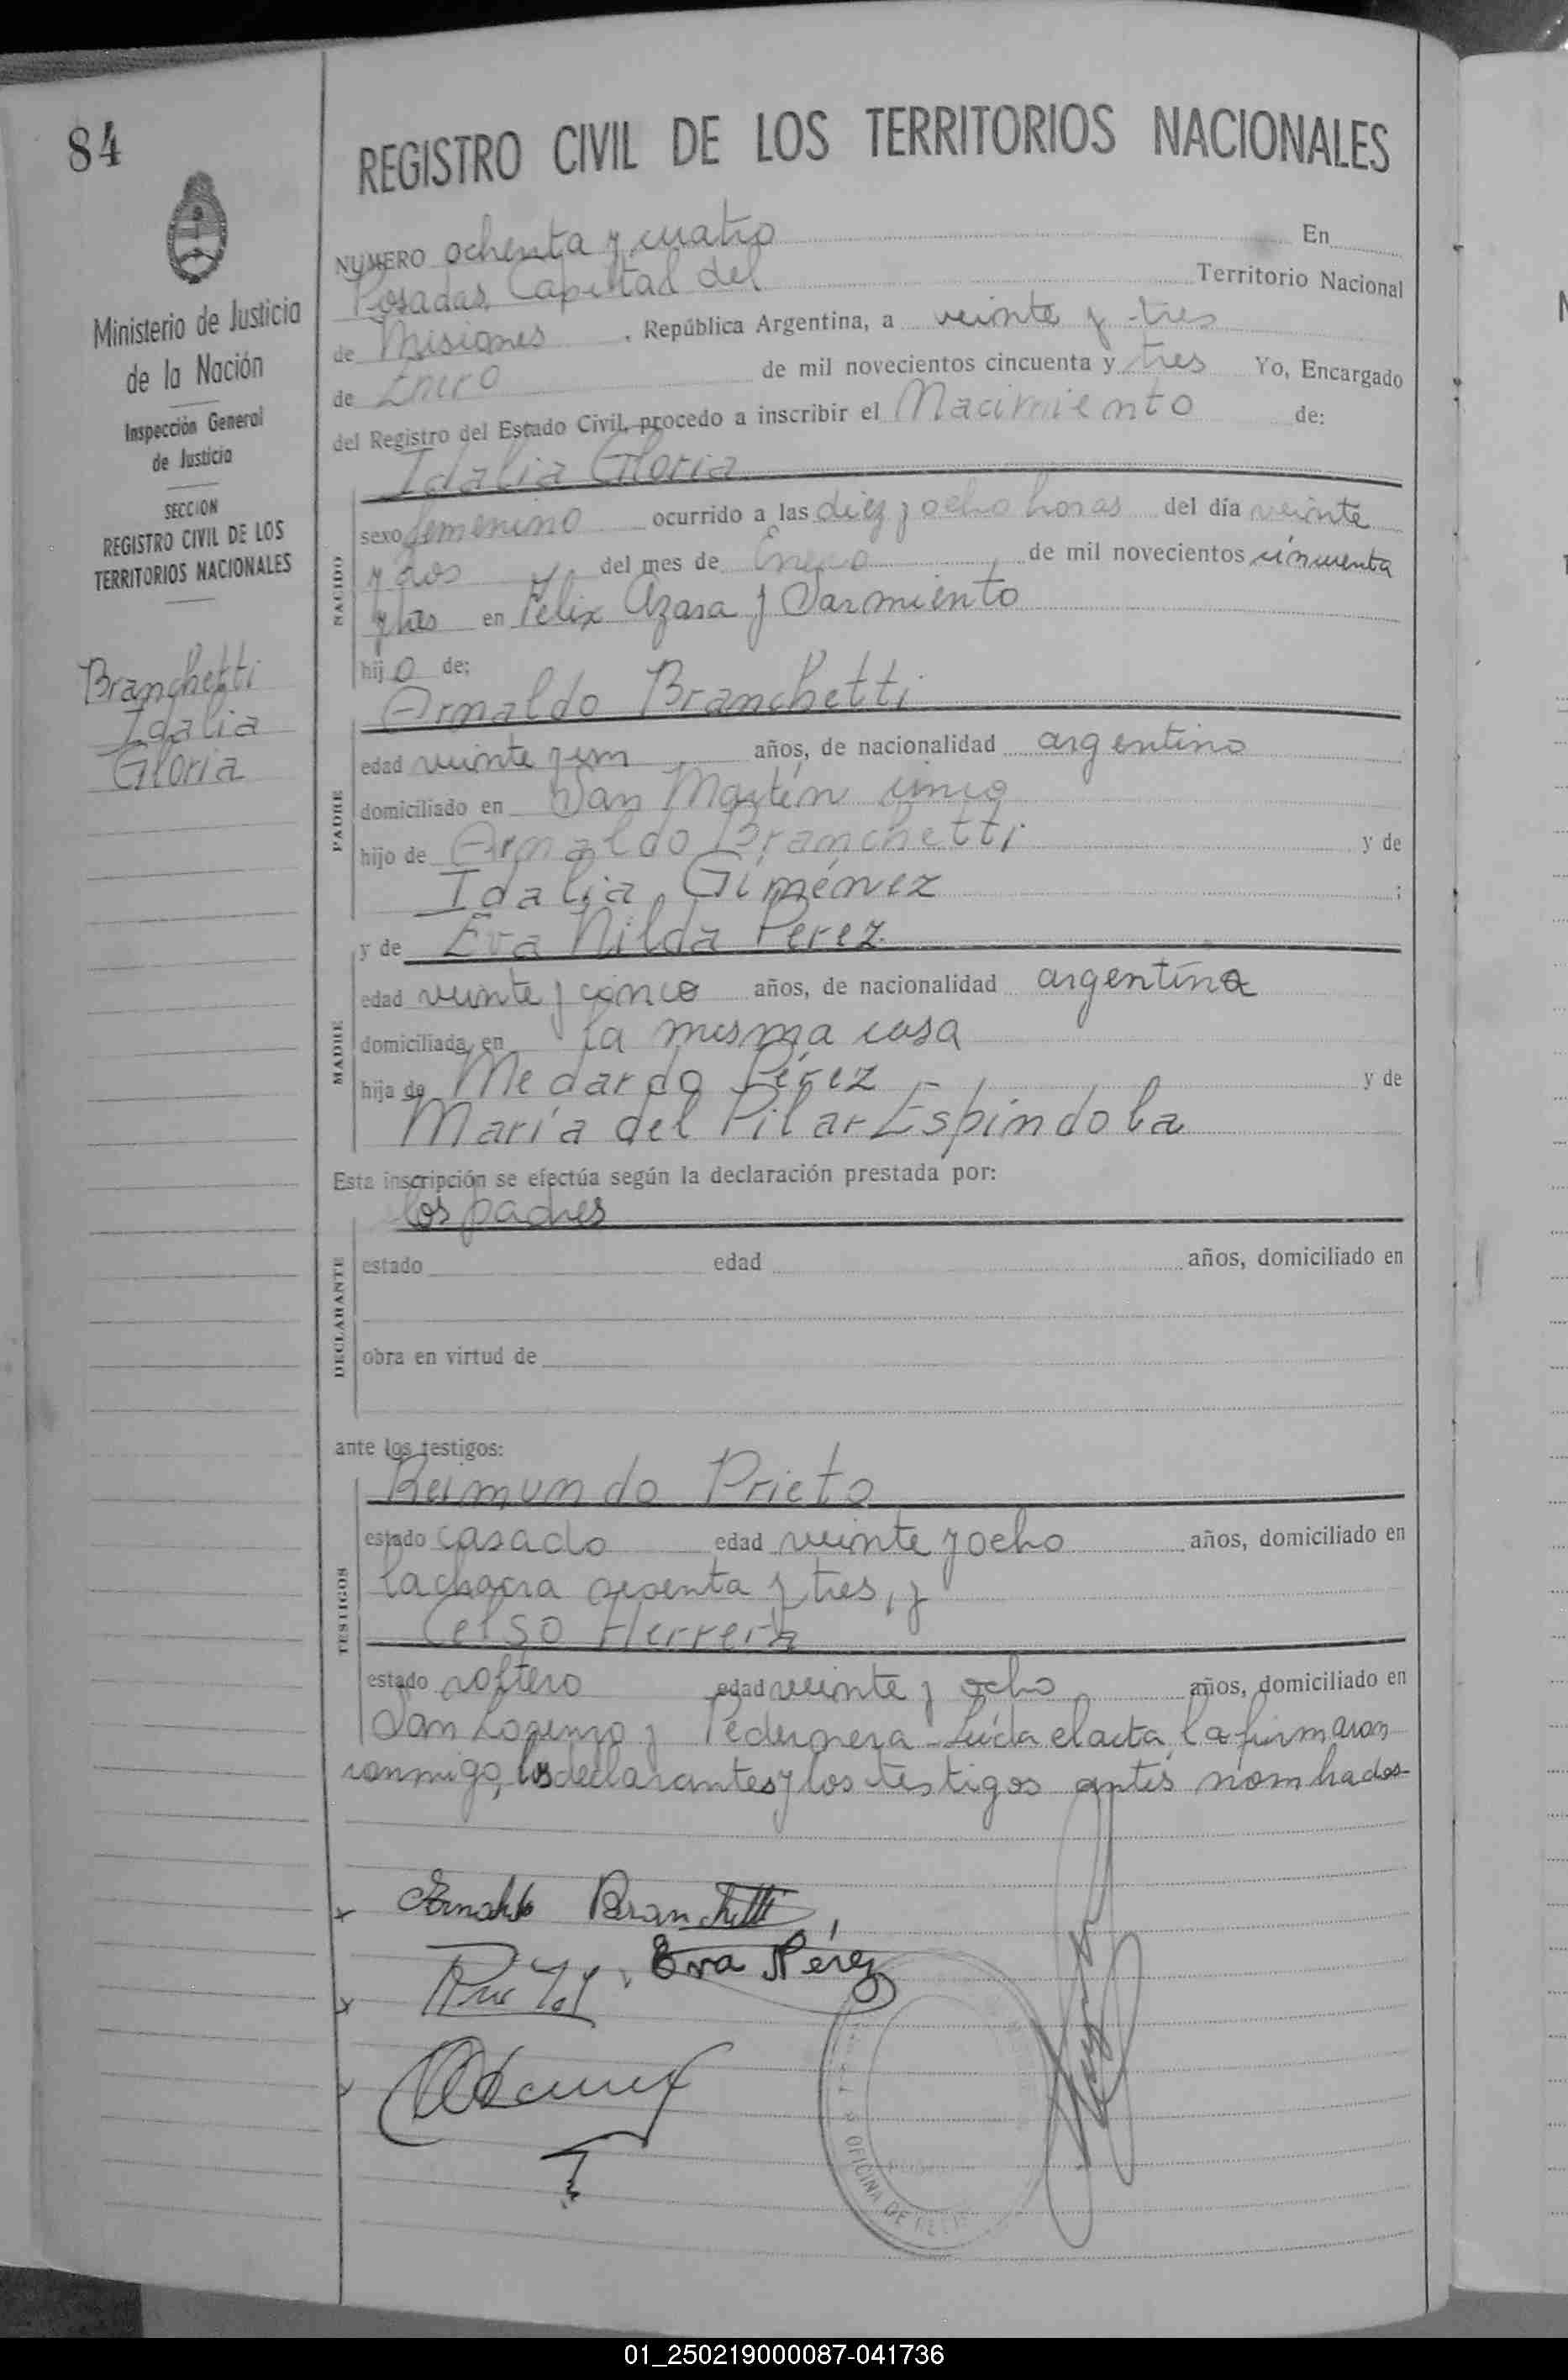 84
REGISTRO CIVIL DE LOS TERRITORIOS NACIONALES
Ministerio de Justicia
de la Nación
Inspección General
de Justicia
SECCION
REGISTRO CIVIL DE LOS
TERRITORIOS NACIONALES
Branchetti
Idalia
Gloria
NUMERO ochenta y cuatro En
Posadas, Capital del Territorio Nacional
de Misiones, República Argentina, a veinte y tres
de Enero de mil novecientos cincuenta y tres Yo, Encargado
del Registro del Estado Civil, procedo a inscribir el Nacimiento de:
Idalia Gloria
NACIDO
sexo femenino ocurrido a las diez y ocho horas del día veinte
y dos del mes de Enero de mil novecientos cincuenta
y tres en Félix Azara y Sarmiento
hij o de:
Arnaldo Branchetti
PADRE
edad veinte y un años, de nacionalidad argentino
domiciliado en San Martín
hijo de Arnaldo Branchetti y de
Idalia Giménez ;
y de Eva Nilda Pérez
MADRE
edad veinte y cinco años, de nacionalidad argentina
domiciliada en la misma casa
hija de Medardo Pérez y de
María del Pilar Espíndola
Esta inscripción se efectúa según la declaración prestada por:
los padres
DECLARANTE
estado edad años, domiciliado en
obra en virtud de
ante los testigos:
Reimundo Prieto
TESTIGOS
estado casado edad veinte y ocho años, domiciliado en
la chacra y tres, y
Celso Herrera
estado soltero edad veinte y ocho años, domiciliado en
San Lorenzo y Pedernera - Leída el acta, la firmaron
conmigo, los declarantes y los testigos antes nombrados-
Arnaldo Branchetti
Eva N Pérez
OFICINA DE
01_250219000087-041736